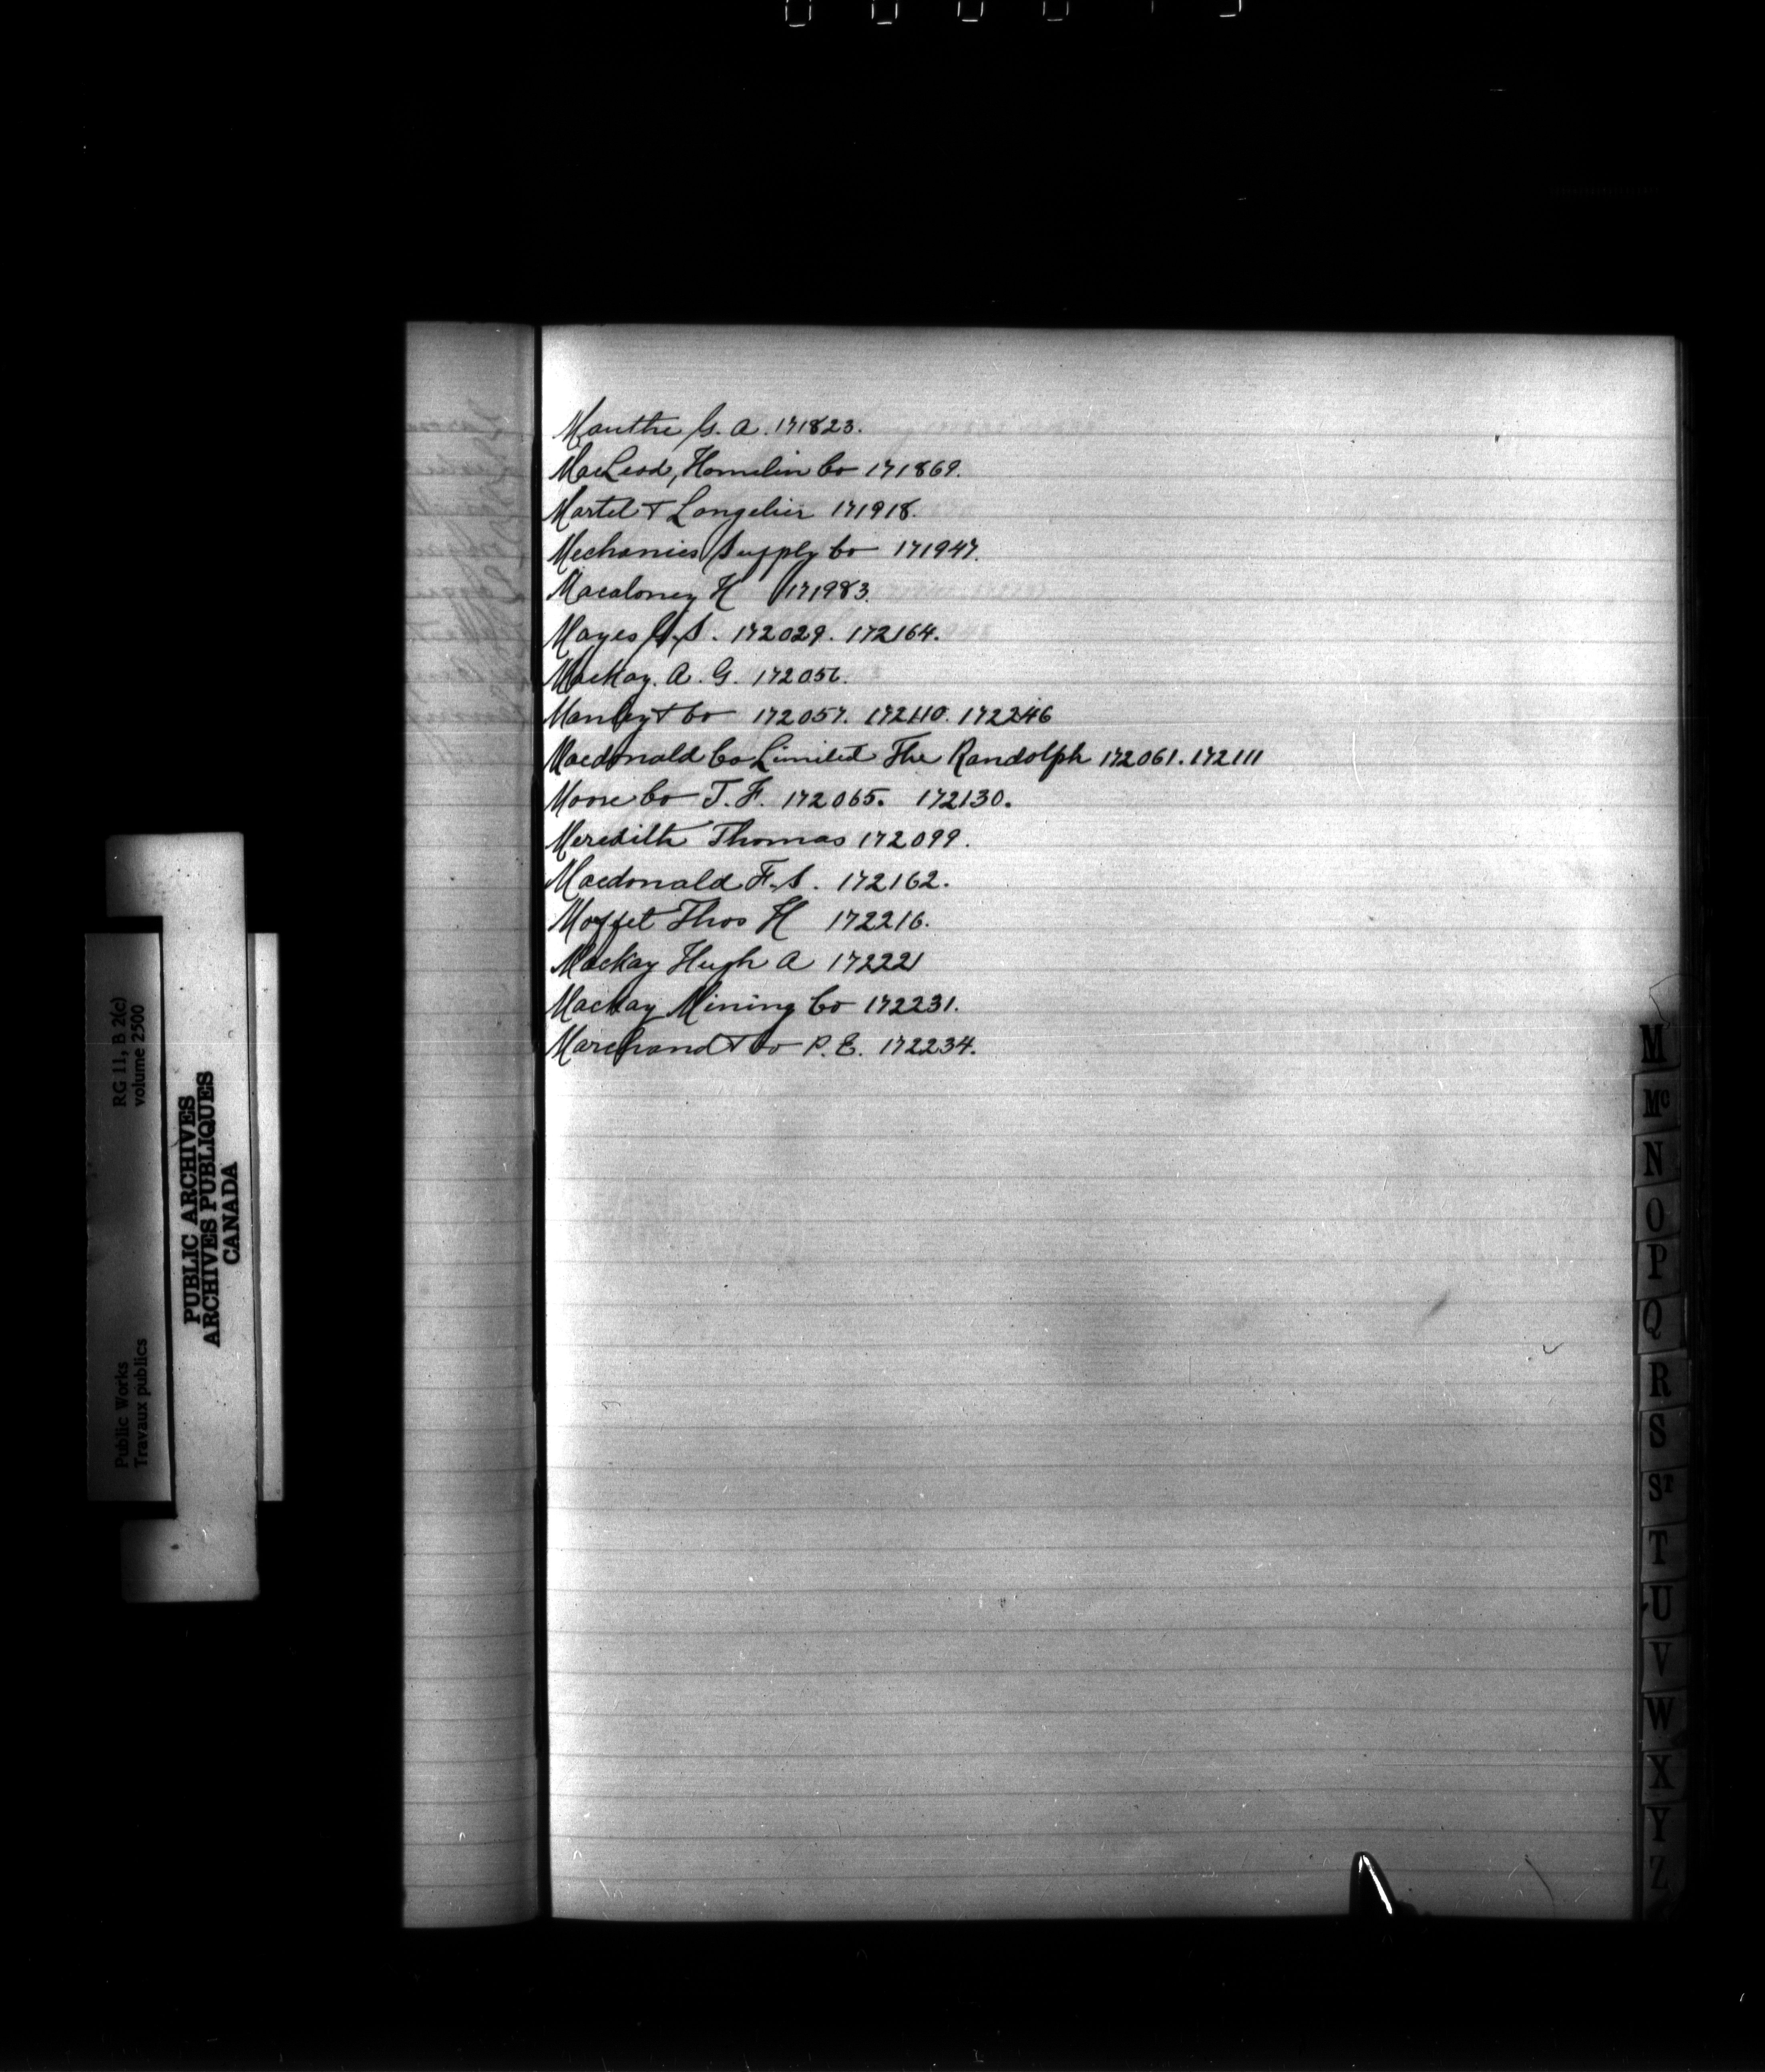 Mauthe G. A. 171823.
MacLeod, Hamelin Co 171869.
Martel & Langelier 171918.
Mechanics Supply Co 171947.
Macaloney H 171983.
Mayes G. S. 172029. 172164.
Mackay. A. G. 172056.
Manley & Co 172057. 172110. 172246
Macdonald Co Limited The Randolph 172061. 172111
Moore Co J. F. 172065. 172130.
Meredith Thomas 172099.
Macdonald F. S. 172162.
Moffet Thos H 172216.
Mackay Hugh A 172221
Mackay Mining Co 172231.
Marchand & Co P. E. 172234.
M
Mc
N
O
P
Q
R
S
ST
T
U
V
W
X
Y
Z
Public Works
Travaux publics
RG 11, B 2(c)
volume 2500
PUBLIC ARCHIVES
ARCHIVES PUBLIQUES
CANADA